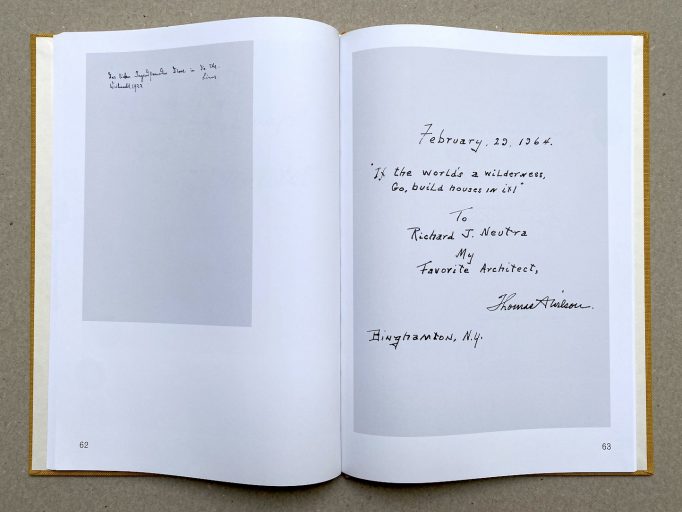 in
62
February, 29, 1964.
"If the world's a wilderness,
Go, build houses in it!"
To
Richard J. Neutra
My
Favorite Architect,
Thomas A Wilson.
Binghamton, N.Y.
63